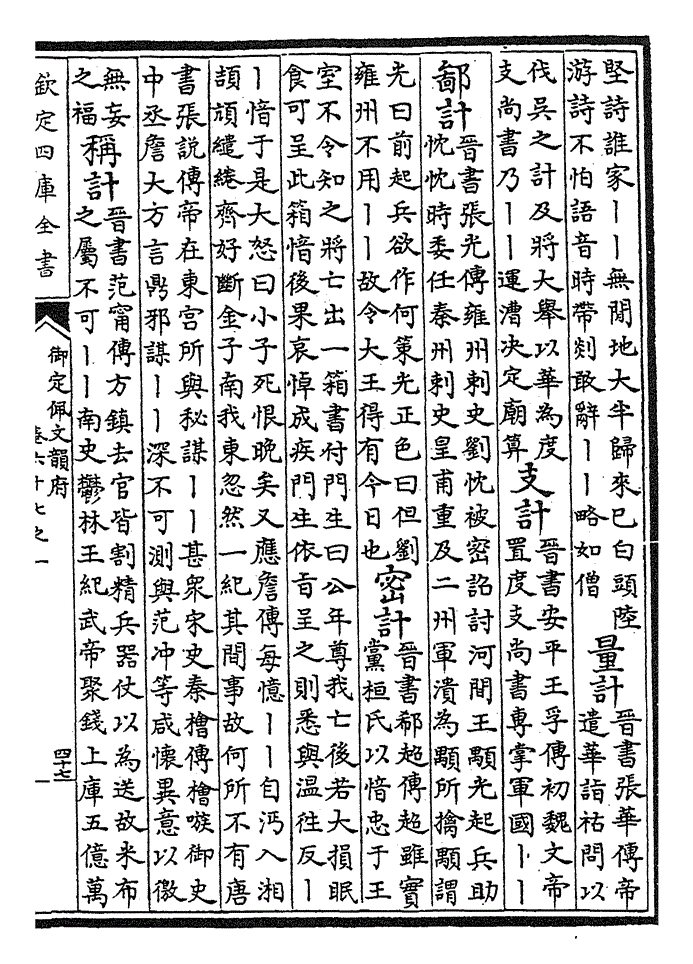 堅詩誰家丨丨無閒地大半歸來已白頭陸
游詩不怕語音時帶剡敢辭丨丨略如僧
量計
晉書張華傳帝
遣華詣祜問以
伐吳之計及將大舉以華為度
支尚書乃丨丨運漕決定廟算
支計
晉書安平王孚傳初魏文帝
置度支尚書專掌軍國丨丨
鄙計
晉書張光傳雍州刺史劉忱被密詔討河間王顒光起兵助
忱忱時委任秦州刺史皇甫重及二州軍潰為顒所擒顒謂
光曰前起兵欲作何策光正色曰但劉
雍州不用丨丨故令大王得有今日也
密計
晉書郗超傳超雖實
黨桓氏以愔忠于王
室不令知之將亡出一箱書付門生曰公年尊我亡後若大損眠
食可呈此箱愔後果哀悼成疾門生依旨呈之則悉與溫往反丨
丨愔于是大怒曰小子死恨晚矣又應詹傳每憶丨丨自沔入湘
頡頏繾綣齊好斷金子南我東忽然一紀其間事故何所不有唐
書張說傳帝在東宮所與秘謀丨丨甚衆宋史秦檜傳檜嗾御史
中丞詹大方言鼎邪謀丨丨深不可測與范冲等咸懷異意以徼
無妄
之福
稱計
晉書范甯傳方鎮去官皆割精兵器仗以為送故米布
之屬不可丨丨南史鬱林王紀武帝聚錢上庫五億萬
欽定四庫全書
御定佩文韻府
卷六十七之一
四十七